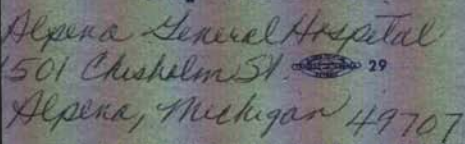 Alpena General Hospital
1501 Chisholm St. 29
Alpena, Michigan 49707